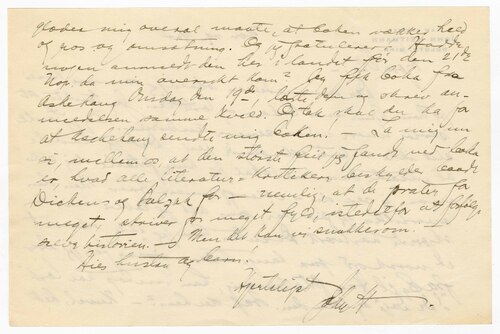 glæder mig overal maate, at boken vækker held
af ros og omsætning. Og jeg gratulerer.
anmeldt den her i landet før den 21de
Nov. da min oversikt kom? Jeg fik boka fra
Aschehoug Onsdag den 19de, læste den og skrev an-
meldelsen samme kveld. Og tak skal du ha for
at Aschehoug sendte mig boken. — La mig nu
si, mellem os, at den største feil jeg fandt ved boka
er hvad alle literatur-kritikere beskylder baade
Dickens og Balzac for — nemlig, at de prater for
meget, skriver for meget fyld, istedetfor at følge
selve historien. — Men det kan vi
Hils hustru og barn!
Hjerteligst